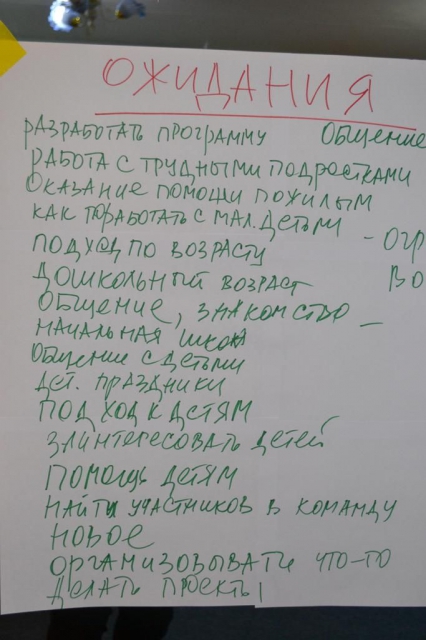 ОЖИДАНИЯ
РАЗРАБОТАТЬ ПРОГРАММУ ОБЩЕНИЕ
РАБОТА С ТРУДНЫМИ ПОДРОСТКАМИ
ОКАЗАНИЕ ПОМОЩИ ПОЖИЛЫМ
КАК ПОРАБОТАТЬ С МАЛ. ДЕТЬМИ
ПОДХОД ПО ВОЗРАСТУ
ДОШКОЛЬНЫЙ ВОЗРАСТ
ОБЩЕНИЕ, ЗНАКОМСТВО –
НАЧАЛЬНАЯ ШКОЛА
ОБЩЕНИЕ С ДЕТЬМИ
ДЕТ. ПРАЗДНИКИ
ПОДХОД К ДЕТЯМ
ЗАИНТЕРЕСОВАТЬ ДЕТЕЙ
ПОМОЩЬ ДЕТЯМ
НАЙТИ УЧАСТНИКОВ В КОМАНДУ
НОВОЕ
ОРГАНИЗОВЫВАТЬ ЧТО-ТО
ДЕЛАТЬ ПРОЕКТЫ